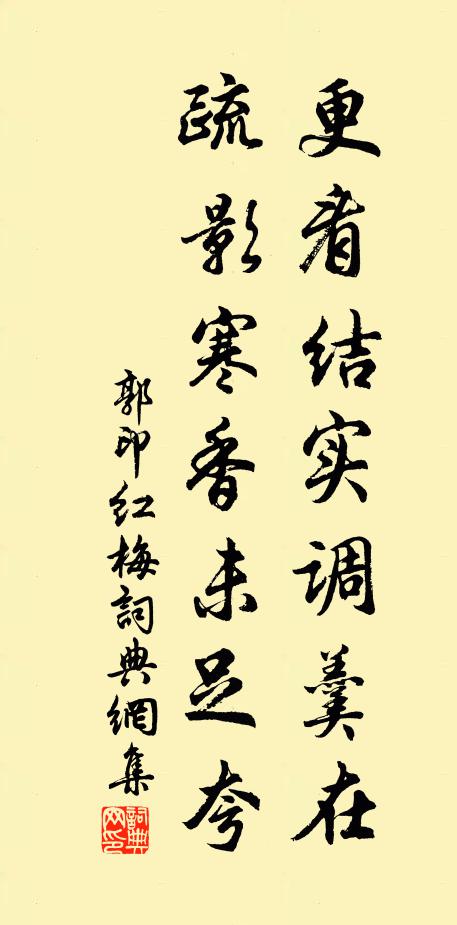 更看结实调羹在
疏影寒香未足夸
郭印红梅詞典網集
詞典網印